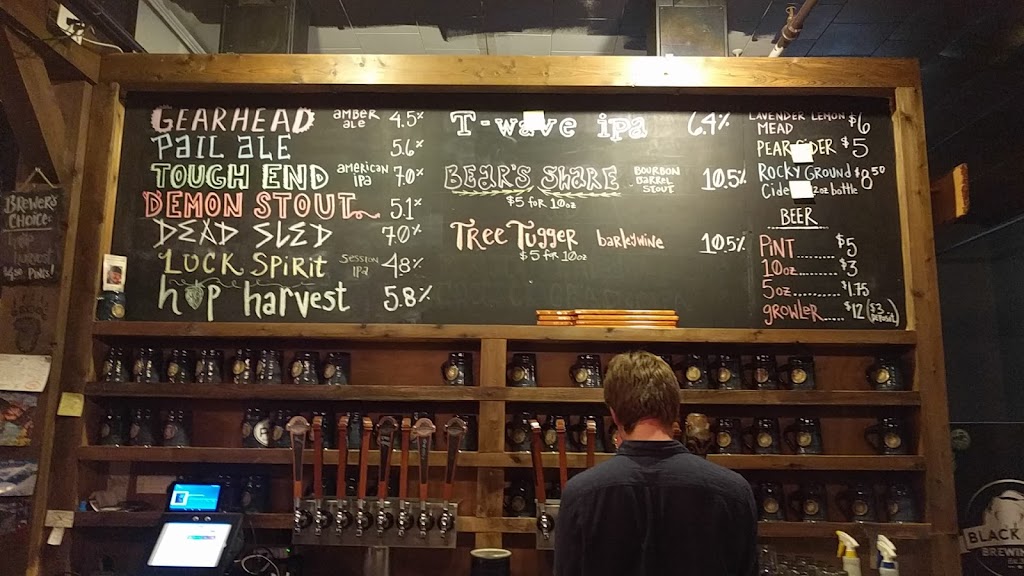 GEARHEAD amber ale 4.5%
Pail ale 5.6%
TOUGH END american IPA 7.0%
DEMON STOUT 5.1%
DEAD SLED 7.0%
LUCK SPIRIT Session IPA 4.8%
hop harvest 5.8%
T-wave ipa 6.4%
BEAR'S SHARE BOURBON BARREL STOUT 10.5%
$5 for 10oz
TREE TUGGER barleywine 10.5%
$5 for 10oz
LAVENDER LEMON
MEAD $6
PEAR CIDER $5
ROCKY GROUND $8.50
Cider 12oz bottle
BEER
PINT ......... $5
10oz ......... $3
5oz ........... $1.75
growler..... $12 ($3 deposit)
BREWER'S
CHOICE:
$4.50 PINTS!
BLACK
BREWIN